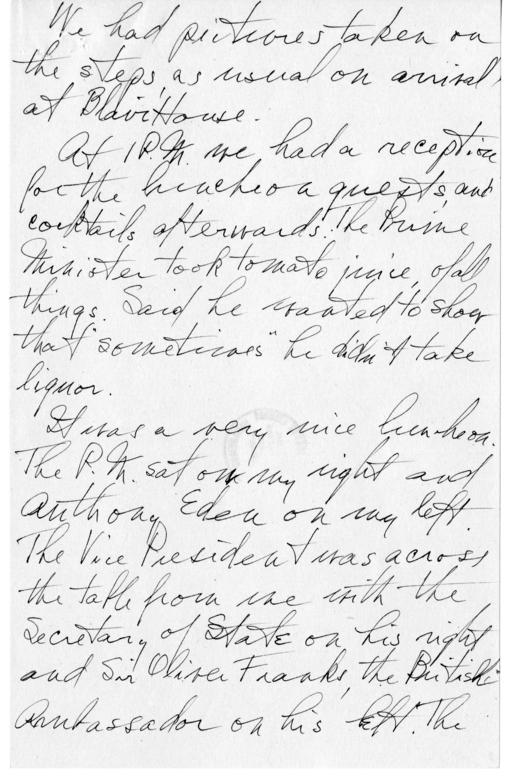 We had pictures taken on
the steps, as usual on arrival,
at Blair House.
At 1 P.M. we had a reception
for the luncheon guests, and
cocktails afterwards. The Prime
Minister took tomato juice, of all
things. Said he wanted to show
that "sometimes" he didn't take
liquor.
It was a very nice luncheon.
The P.M. sat on my right and
Anthony Eden on my left.
The Vice President was across
the table from me with the
Secretary of State on his right
and Sir Oliver Franks, the British
Ambassador on his left. The